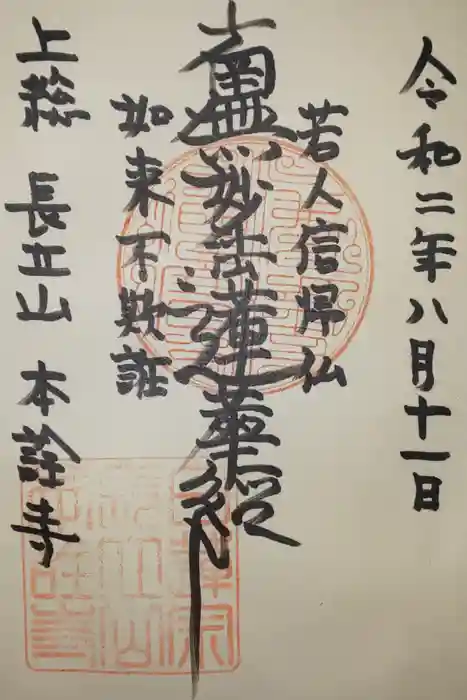 令和二年八月十一日
若人信帰仏
南無妙法蓮華経
如来不欺誑
上総 長立山 本詮寺